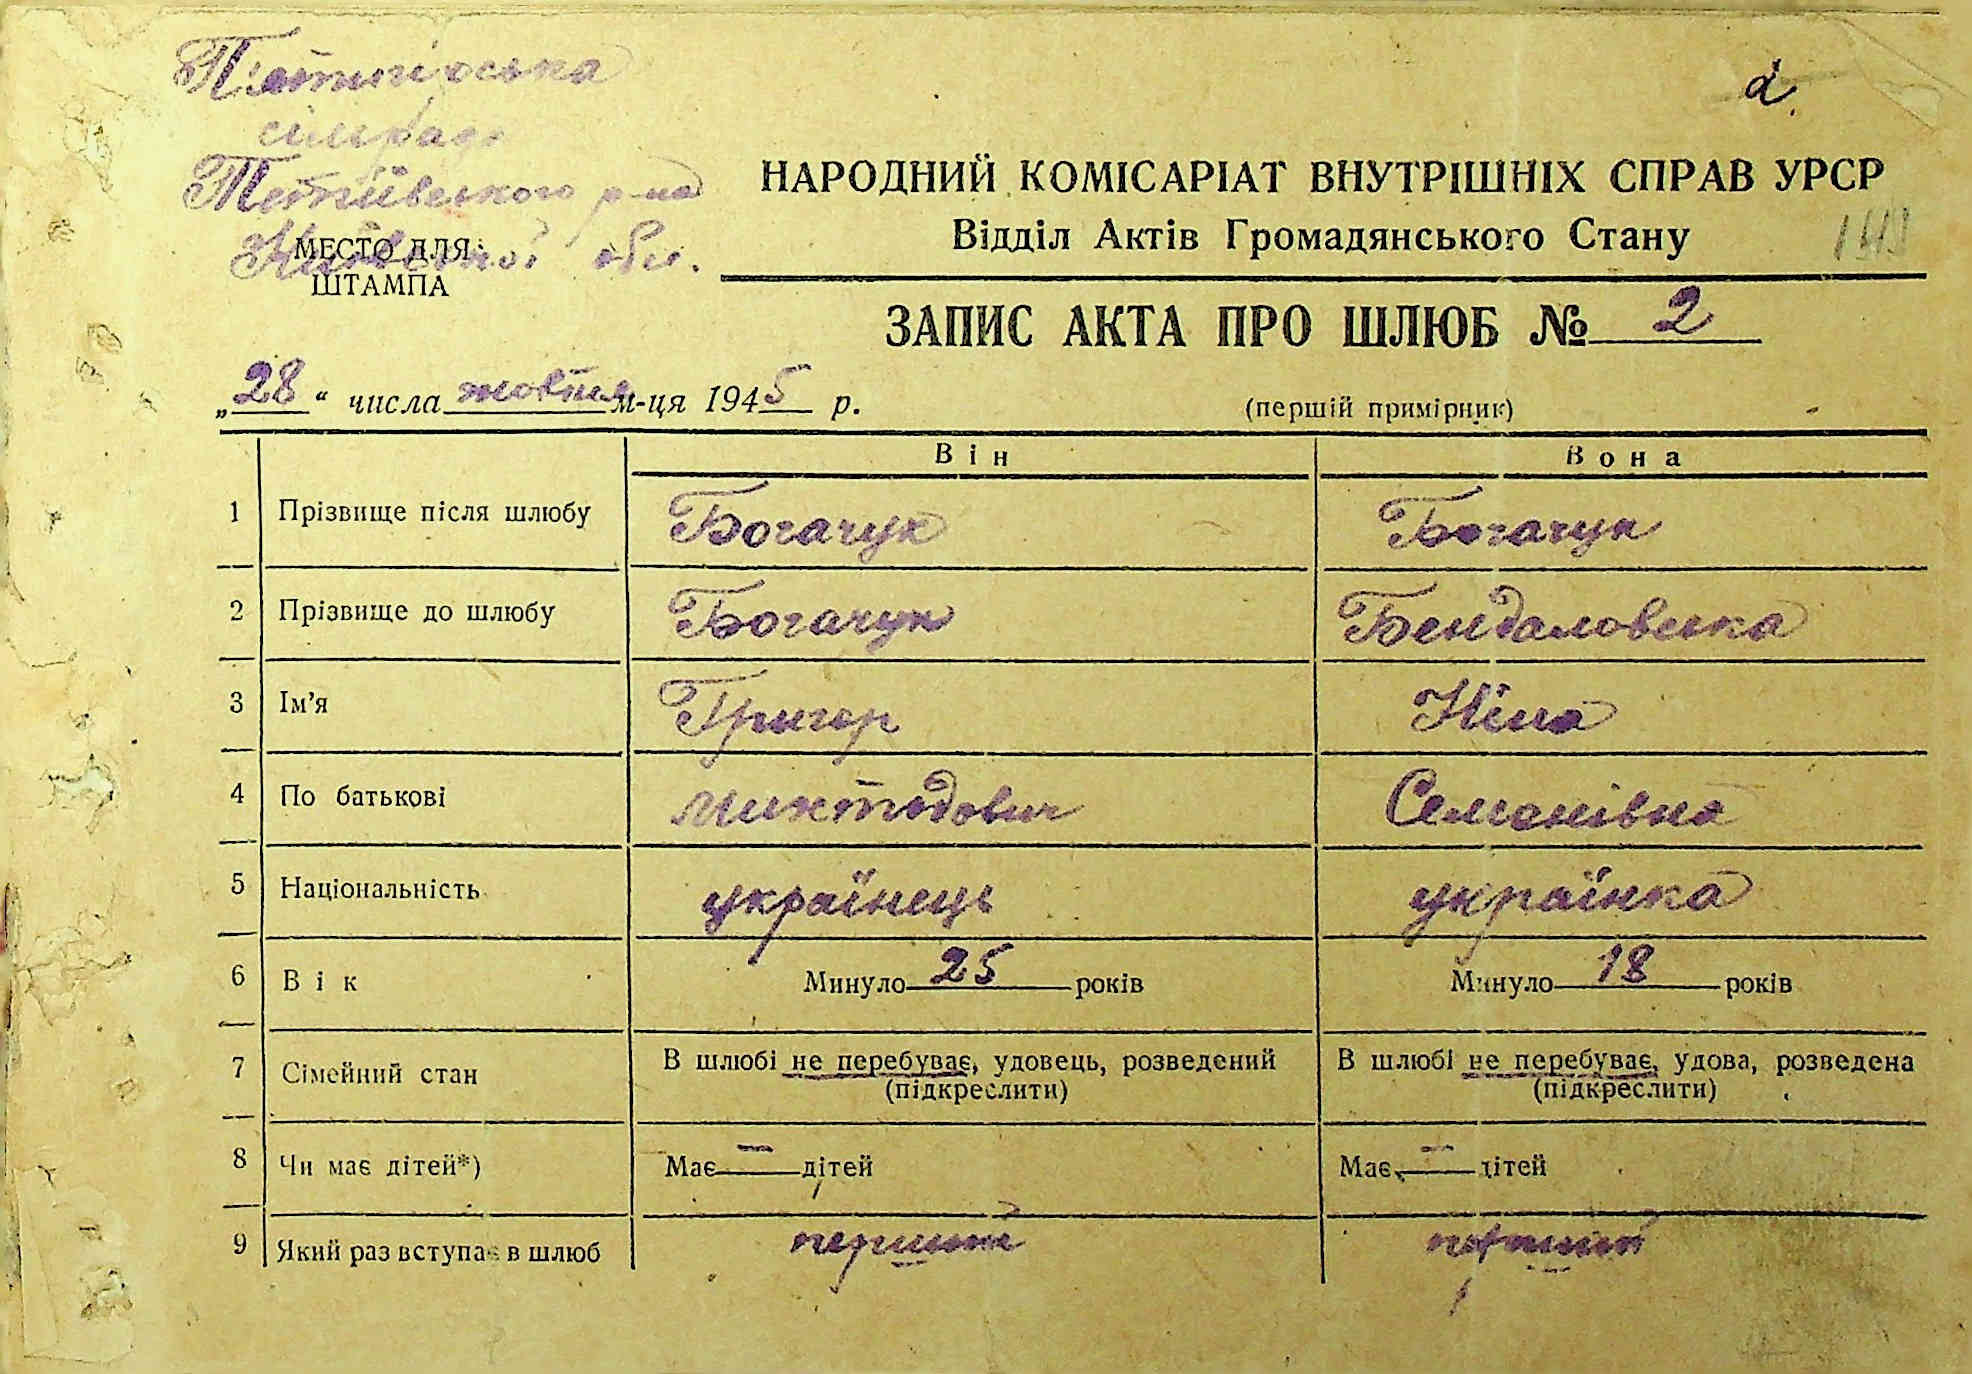 П'ятигірська
сільрада
Тетіївського р-на
Київської обл.
МЕСТО ДЛЯ
ШТАМПА
2.
НАРОДНИЙ КОМІСАРІАТ ВНУТРІШНІХ СПРАВ УРСР
Відділ Актів Громадянського Стану
ЗАПИС АКТА ПРО ШЛЮБ № 2
„28“ числа жовтня м-ця 1945 р.
(першій примірник)
Він Вона
1 Прізвище після шлюбу Богачук Богачук
2 Прізвище до шлюбу Богачук Бендаловська
3 Ім'я Григор Ніна
4 По батькові Семенівна
5 Національність українець українка
6 Вік Минуло 25 років Минуло 18 років
7 Сімейний стан В шлюбі не перебуває, удовець, розведений В шлюбі не перебуває, удова, розведена
(підкреслити) (підкреслити)
8 Чи має дітей*) Має — дітей Має — дітей
9 Який раз вступає в шлюб перший перший